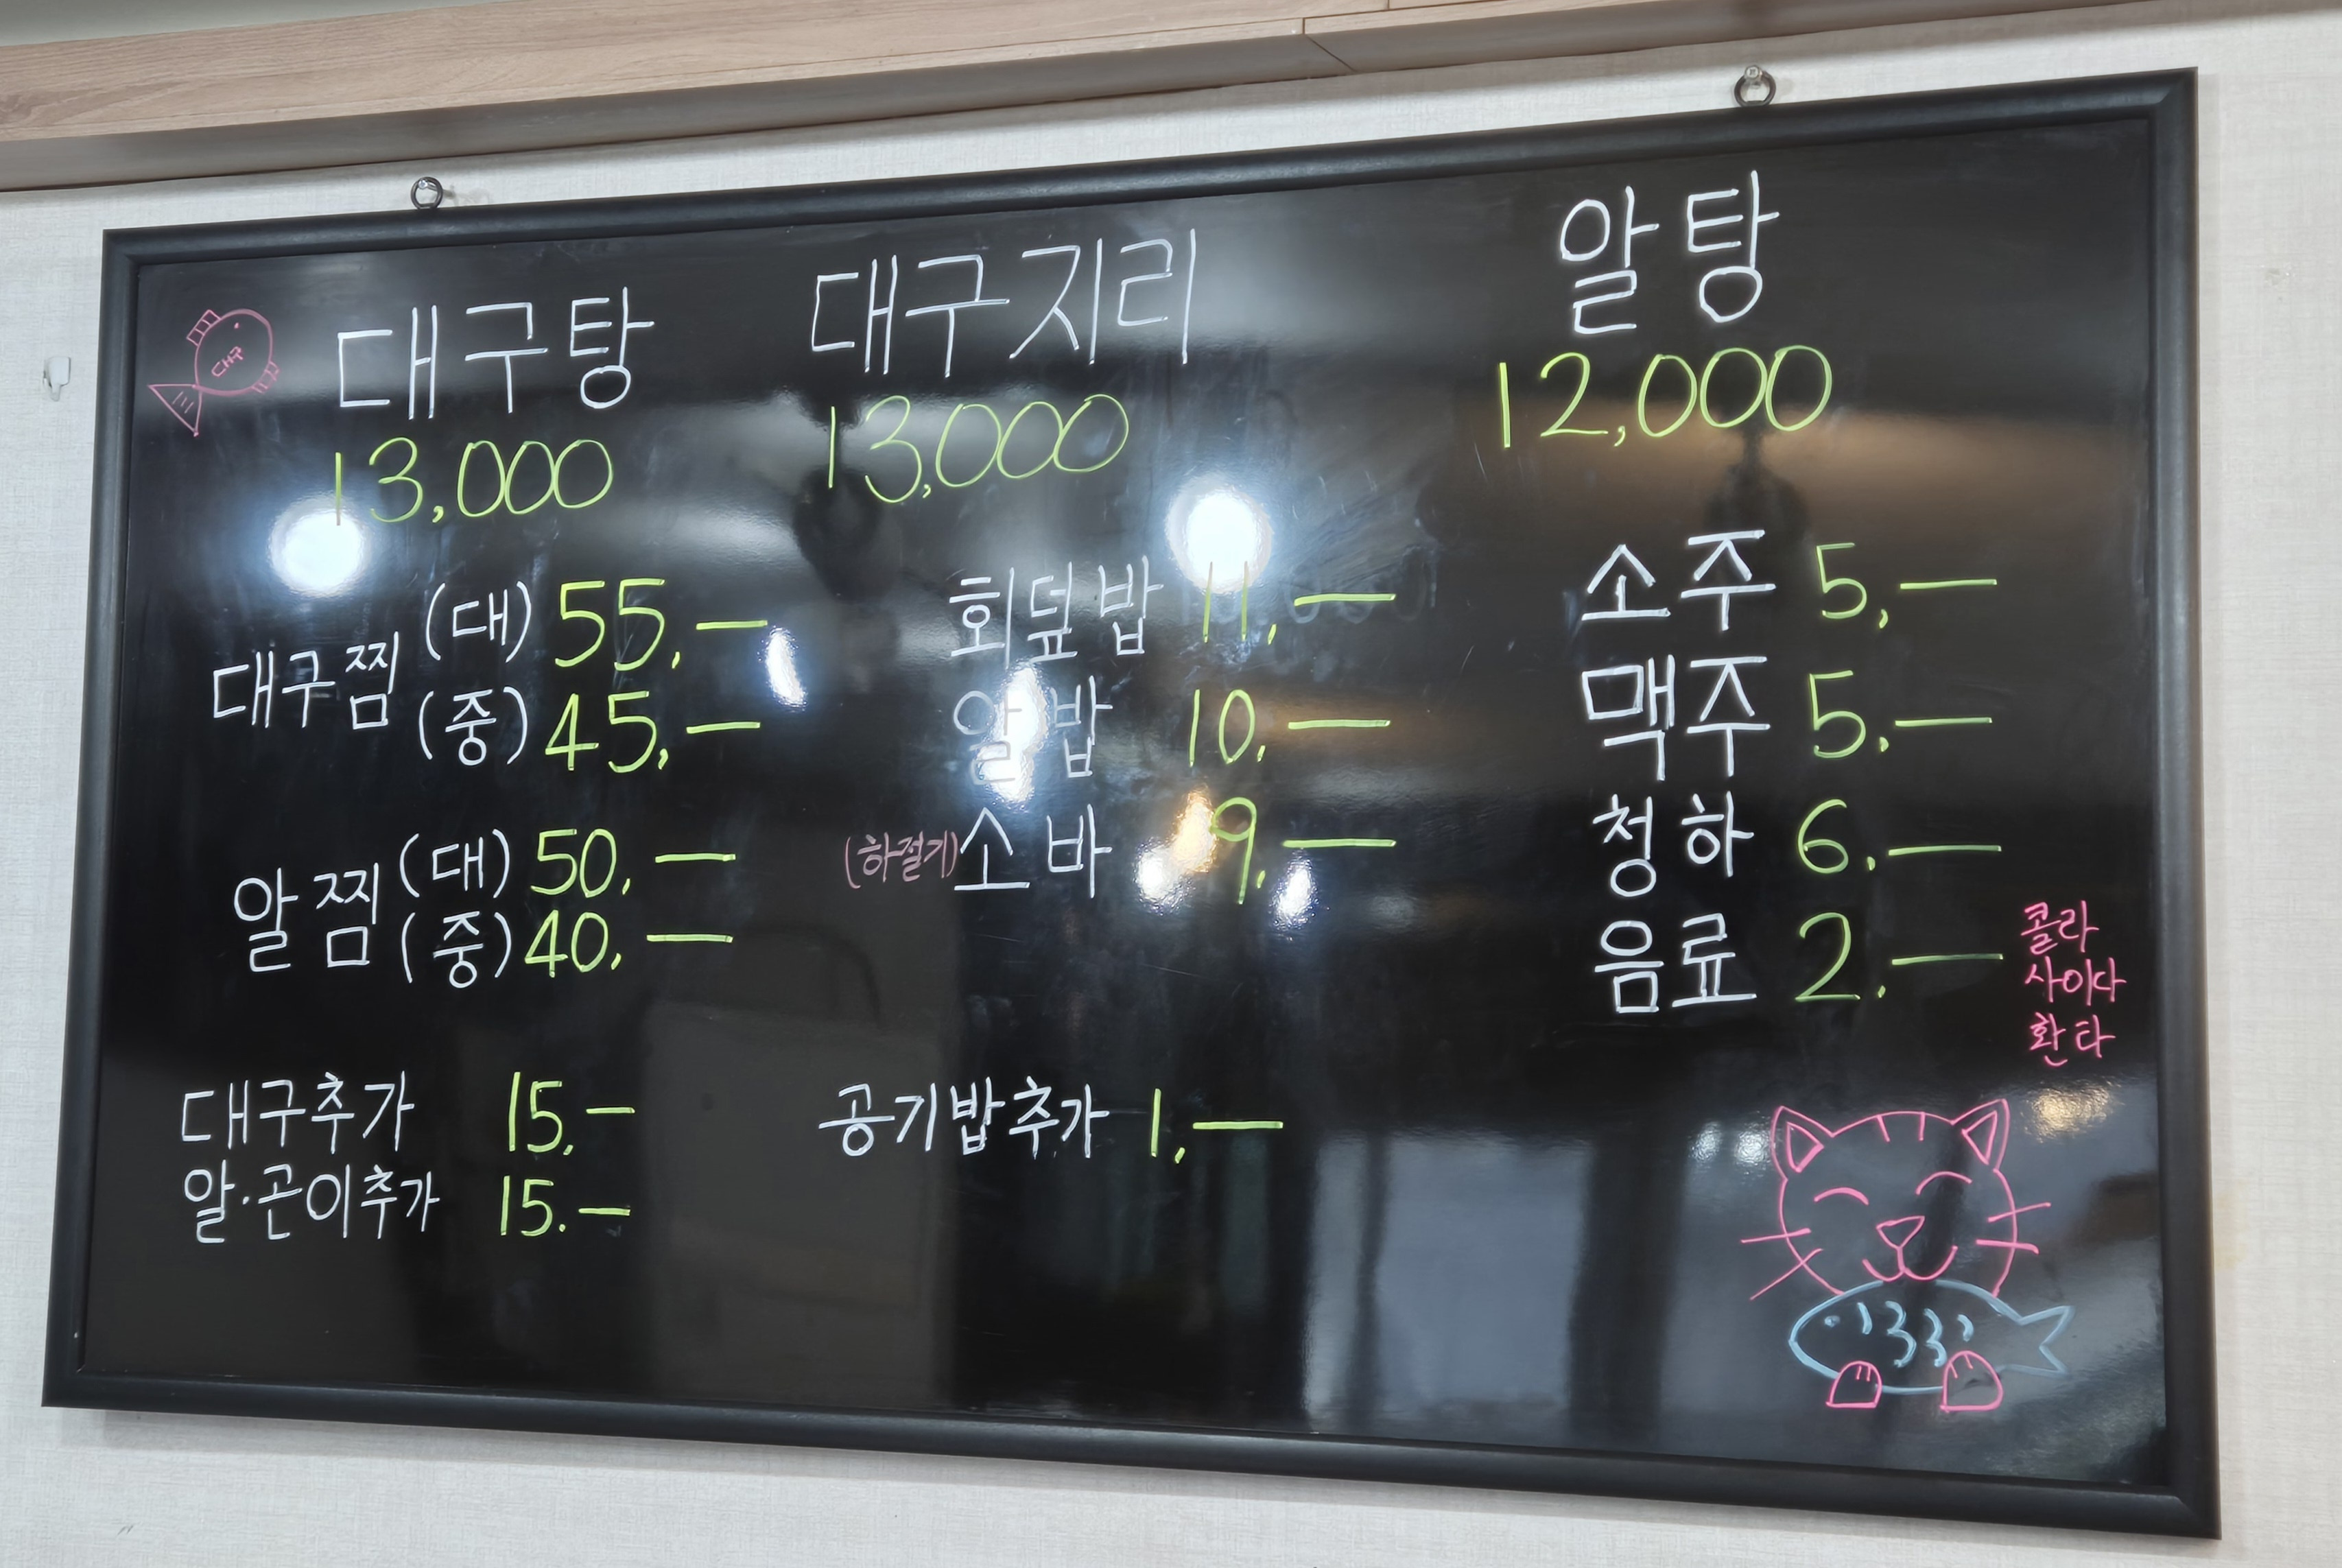 대구
대구탕
13,000
대구지리
13,000
알탕
12,000
대구찜 (대) 55,—
(중) 45,—
알찜 (대) 50,—
(중) 40,—
대구추가 15,—
알·곤이추가 15.—
회덮밥 11,—
알밥 10,—
(하절기) 소바 9,—
공기밥추가 1,—
소주 5,—
맥주 5,—
청하 6,—
음료 2,— 콜라
사이다
환타